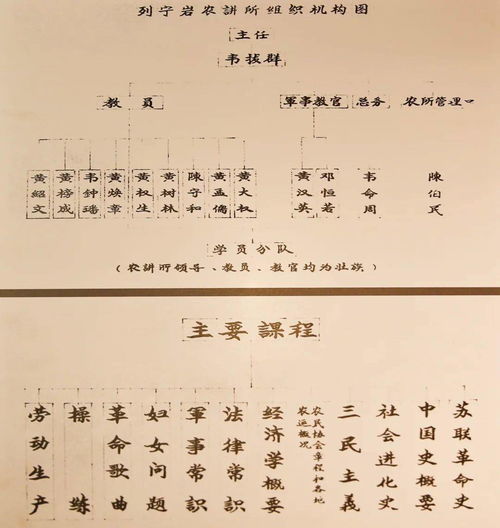 列宁岩农講所組织机构图
主任
韦拔群
教員
軍事教官
总务
农所管理
黄紹文
黄榜成
韦钟璠
黄焕章
黄权生
黄树林
陳守和
黄孟儁
黄大权
黄汉英
邓恒若
韦命周
陳伯民
学员分队
（农講所領导、教员、教官均为壮族）
主要課程
劳动生产
操練
革命歌曲
妇女问題
軍事常識
法律常識
经济学概要
农民协会章程和各地
农运概次
三民主義
社会進化史
中国史概要
苏联革命史